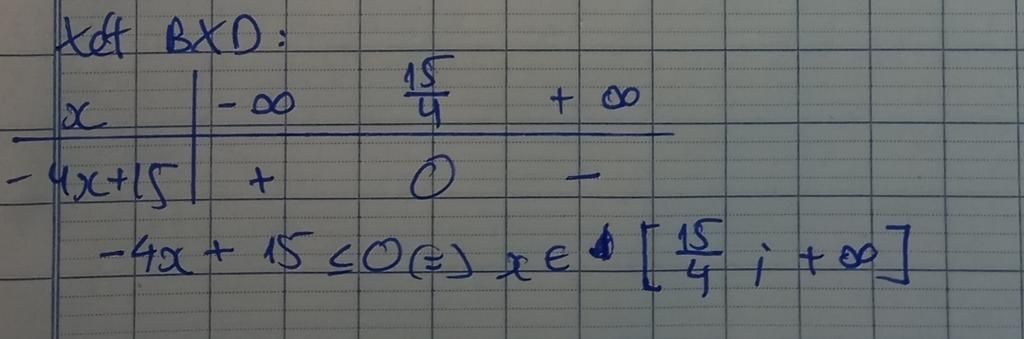 Xét BXD:
x | -∞ 15/4 +∞
-4x+15 | + 0 -
-4x + 15 ≤ 0 (=) x ∈ [15/4 ; +∞]